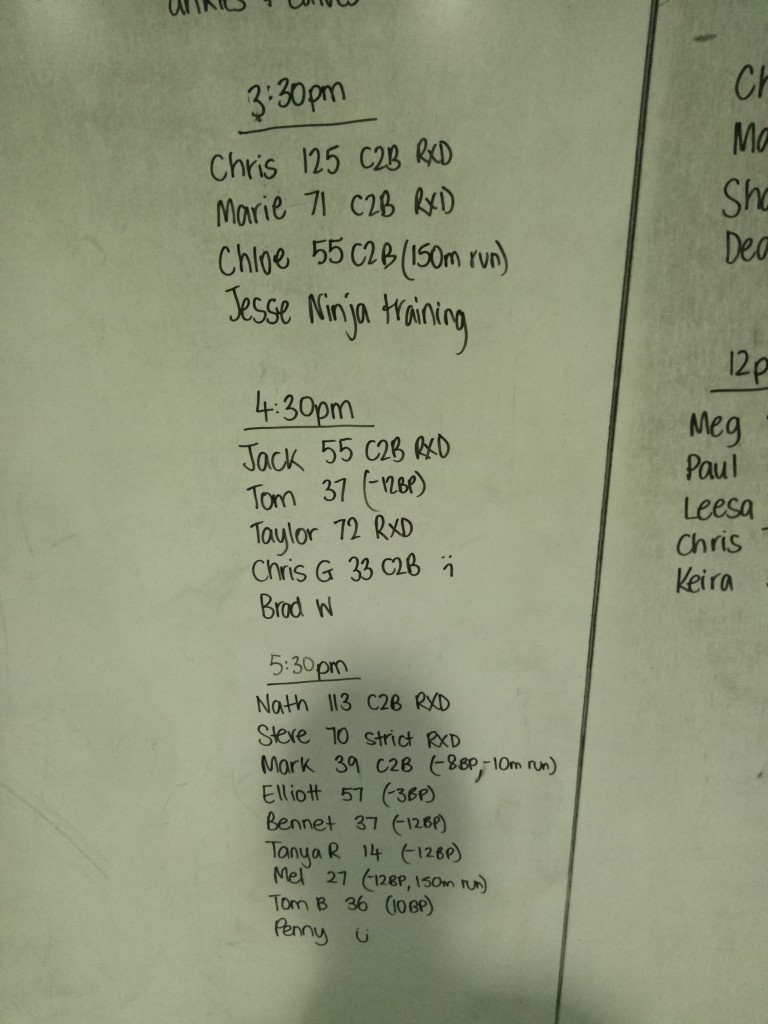 ankles + calves
3:30pm
Chris 125 C2B RXD
Marie 71 C2B RXD
Chloe 55 C2B (150m run)
Jesse Ninja training
4:30pm
Jack 55 C2B RXD
Tom 37 (-12BP)
Taylor 72 RXD
Chris G 33 C2B
Brad W
5:30pm
Nath 113 C2B RXD
Steve 70 strict RXD
Mark 39 C2B (-8BP, -10m run)
Elliott 57 (-3BP)
Bennet 37 (-12BP)
Tanya R 14 (-12BP)
Mel 27 (-12BP, 150m run)
Tom B 36 (10BP)
Penny
Ch
Ma
Sha
Dea
12p
Meg
Paul
Leesa
Chris
Keira